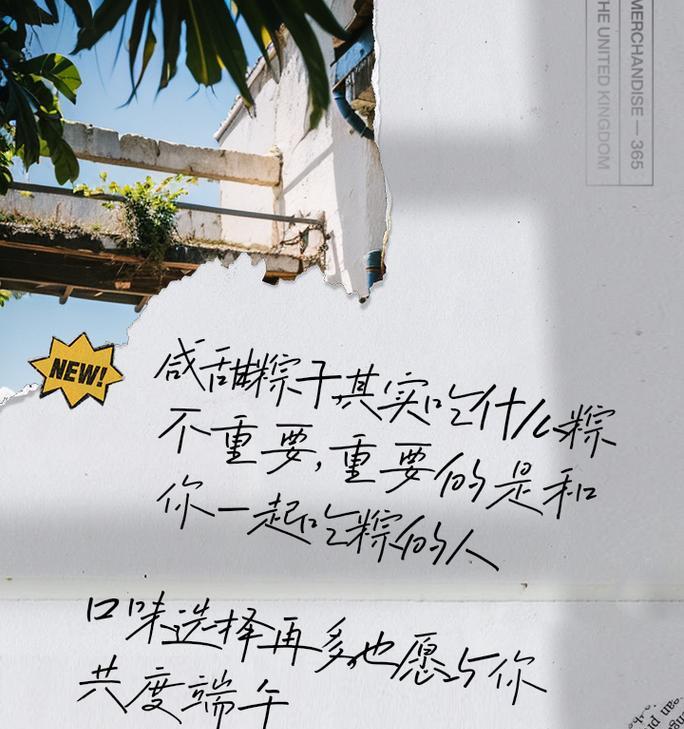 MERCHANDISE — 365
THE UNITED KINGDOM
NEW!
咸甜粽子,其实吃什么粽
不重要,重要的是和
你一起吃粽的人
口味选择再多也愿与你
共度端午